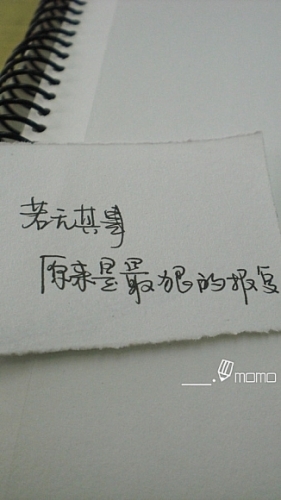 若无其事
原来是最狠的报复
momo